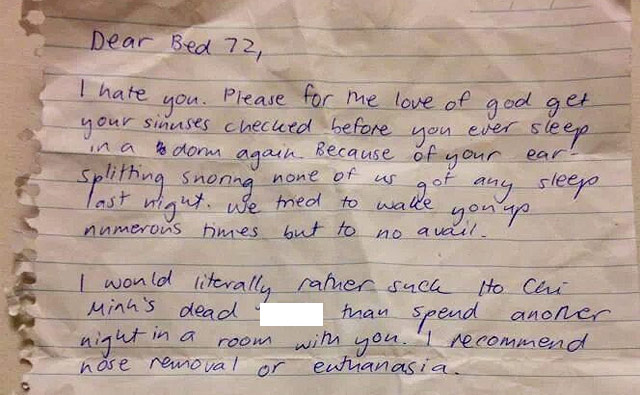 Dear Bed 72,
I hate you. Please for the love of god get
your sinuses checked before you ever sleep
in a dorm again. Because of your ear-
splitting snoring none of us got any sleep
last night. We tried to wake you up
numerous times but to no avail.
I would literally rather suck Ho Chi
Minh's dead than spend another
night in a room with you. I recommend
nose removal or euthanasia.